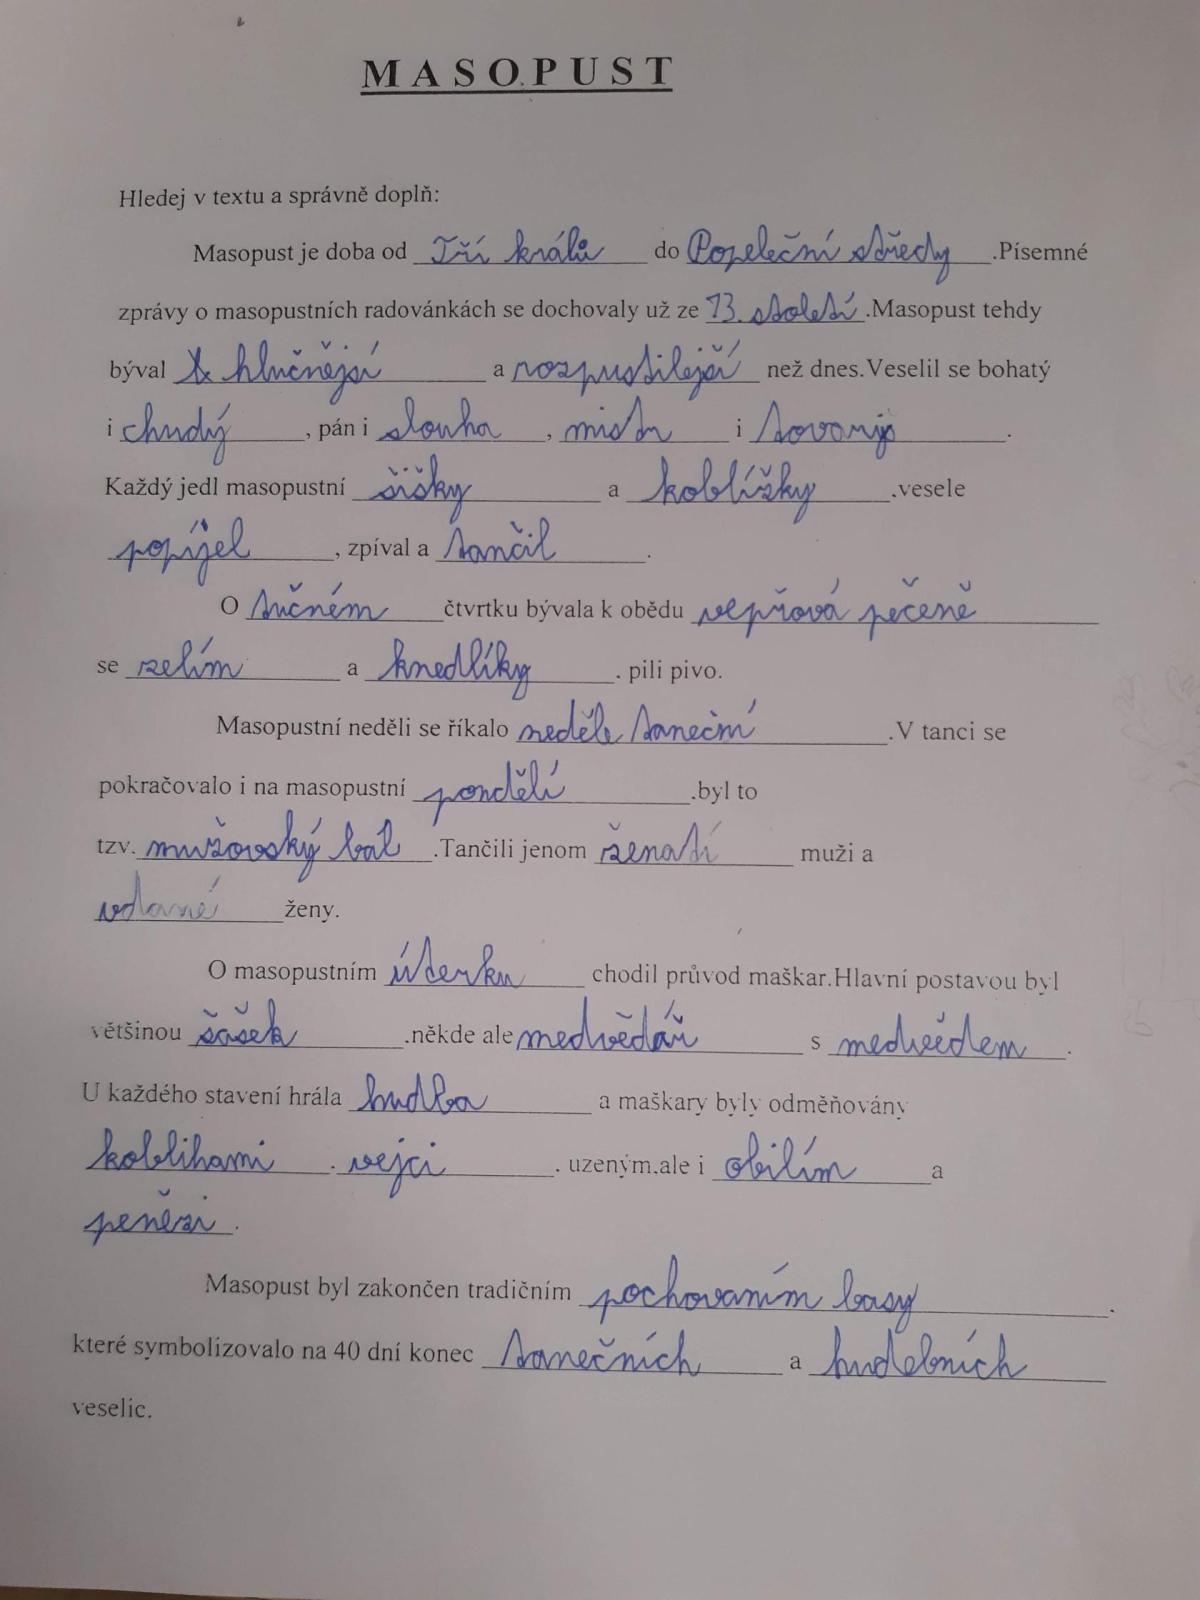 MASOPUST
Hledej v textu a správně doplň:
Masopust je doba od Tří králů do Popeleční středy.Písemné
zprávy o masopustních radovánkách se dochovaly už ze 13. století.Masopust tehdy
býval hlučnější a rozpustilejší než dnes.Veselil se bohatý
i chudý, pán i slouha, mistr i tovaryš.
Každý jedl masopustní šišky a koblížky.vesele
popíjel, zpíval a tančil.
O tučném čtvrtku bývala k obědu vepřová pečeně
se zelím a knedlíky. pili pivo.
Masopustní neděli se říkalo neděle taneční.V tanci se
pokračovalo i na masopustní pondělí.byl to
tzv. mužovský bál.Tančili jenom ženatí muži a
vdané ženy.
O masopustním úterku chodil průvod maškar.Hlavní postavou byl
většinou šašek.někde ale medvědář s medvědem.
U každého stavení hrála hudba a maškary byly odměňovány
koblihami. vejci. uzeným.ale i obilím a
penězi.
Masopust byl zakončen tradičním pochovaním basy.
které symbolizovalo na 40 dní konec tanečních a hudebních
veselic.